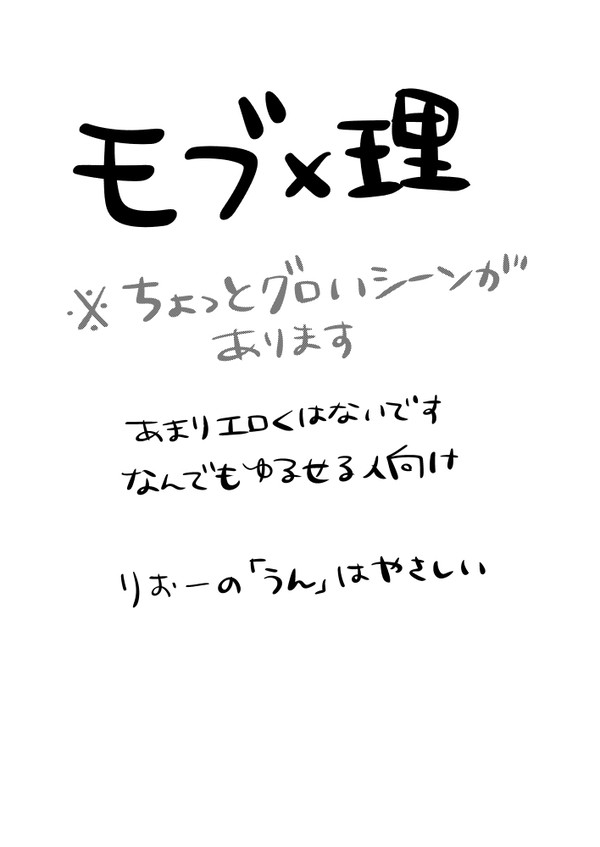 モブ×理
※ちょっとグロいシーンが
あります
あまりエロくはないです
なんでもゆるせる人向け
りおーの「うん」はやさしい